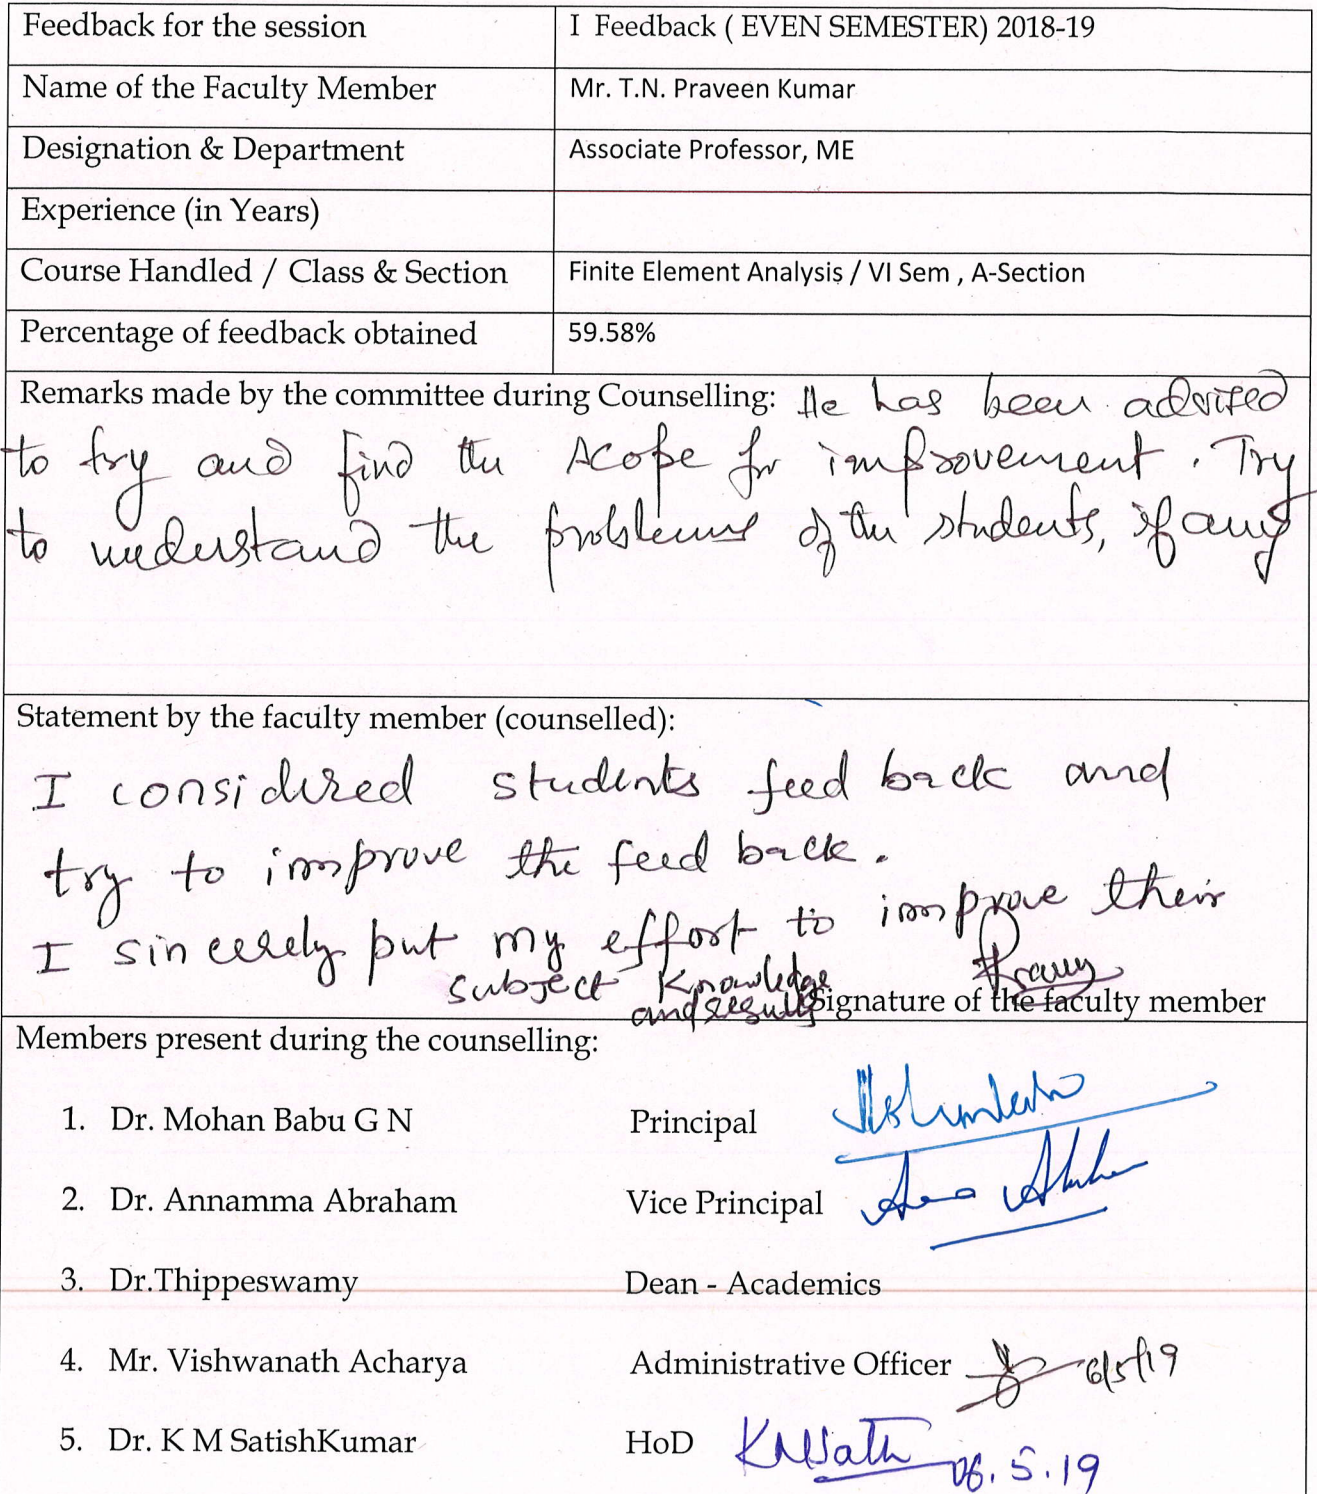 Feedback for the session I Feedback ( EVEN SEMESTER) 2018-19
Name of the Faculty Member Mr. T.N. Praveen Kumar
Designation & Department Associate Professor, ME
Experience (in Years)
Course Handled / Class & Section Finite Element Analysis / VI Sem , A-Section
Percentage of feedback obtained 59.58%
Remarks made by the committee during Counselling: He has been advised
to try and find the scope for improvement. Try
to understand the problems of the students, if any
Statement by the faculty member (counselled):
I considered students feed back and
try to improve the feed back.
I sincerely put my effort to improve their
subject knowledge
and results
Signature of the faculty member
Members present during the counselling:
1. Dr. Mohan Babu G N Principal
2. Dr. Annamma Abraham Vice Principal
3. Dr.Thippeswamy Dean - Academics
4. Mr. Vishwanath Acharya Administrative Officer 6/5/19
5. Dr. K M SatishKumar HoD 06.5.19